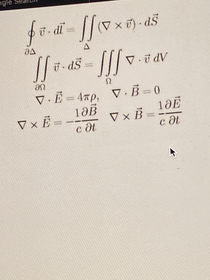 gle Search
∮_{∂Δ} v⃗ · dl⃗ = ∬_Δ (∇ × v⃗) · dS⃗
∬_{∂Ω} v⃗ · dS⃗ = ∭_Ω ∇ · v⃗ dV
∇ · E⃗ = 4πρ, ∇ · B⃗ = 0
∇ × E⃗ = −(1/c)(∂B⃗/∂t) ∇ × B⃗ = (1/c)(∂E⃗/∂t)